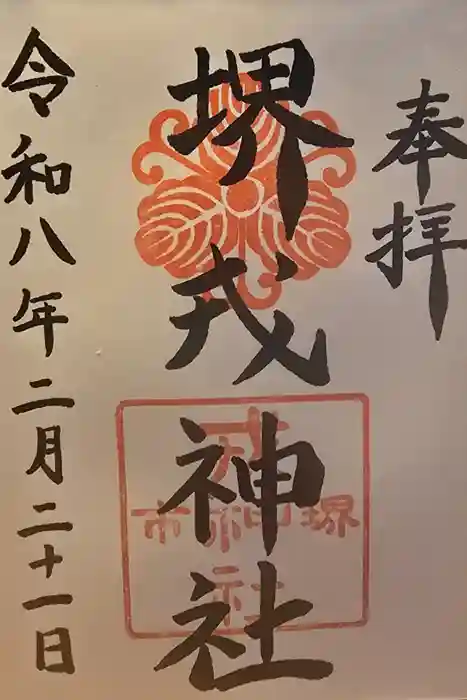 奉拝
堺戎神社
令和八年二月二十一日
堺市
戎神社